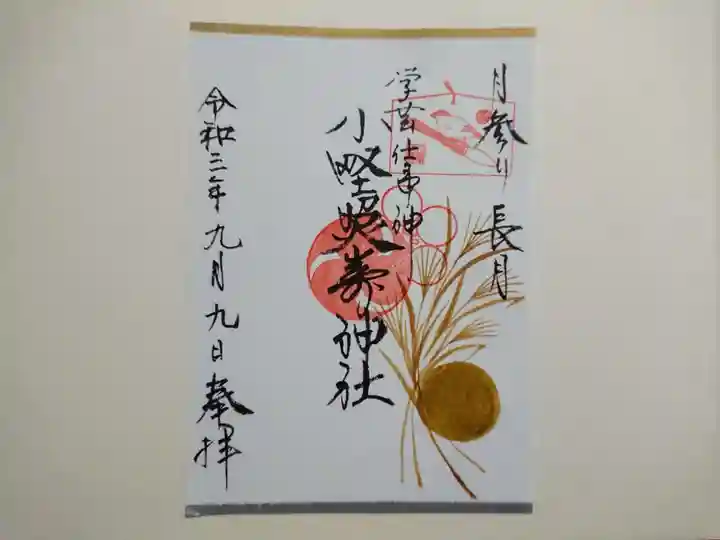 月参り 長月
学芸仕事神
小野照崎神社
令和三年九月九日奉拝